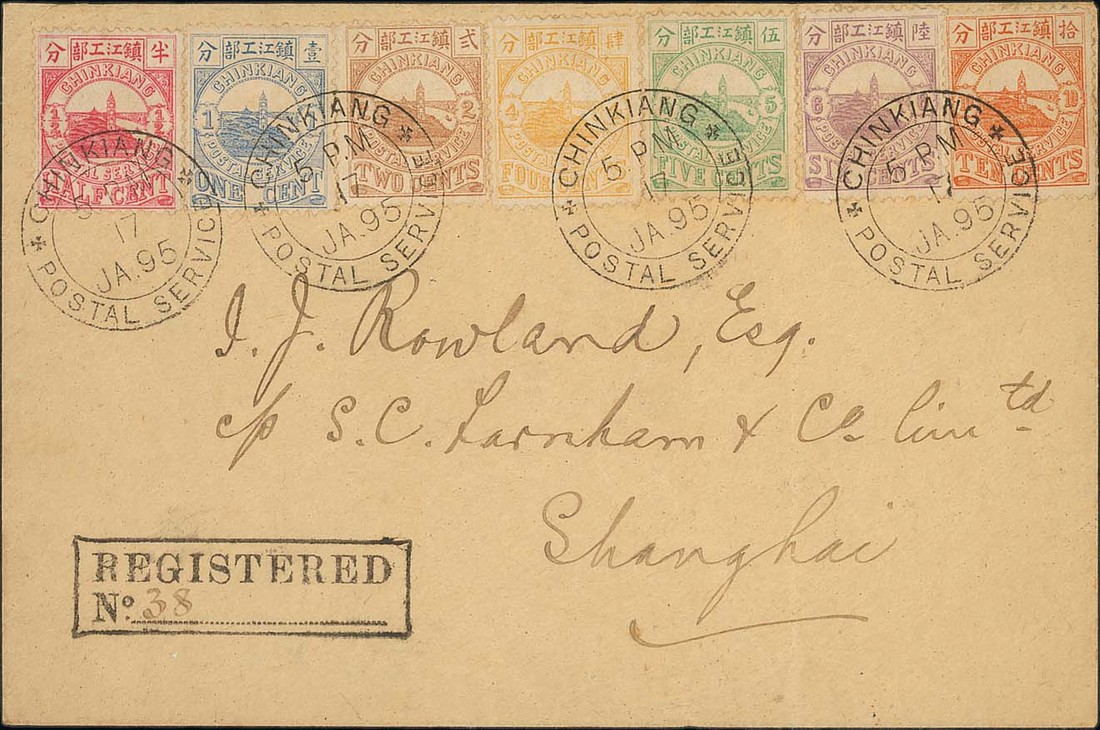 分部工江鎮半
CHINKIANG
½ ½
POSTAL SERVICE
HALF CENT
分部工江鎮壹
CHINKIANG
1
POSTAL SERVICE
ONE CENT
分部工江鎮弍
CHINKIANG
2
POSTAL SERVICE
TWO CENTS
分部工江鎮肆
CHINKIANG
4
POSTAL SERVICE
FOUR CENTS
分部工江鎮伍
CHINKIANG
5
POSTAL SERVICE
FIVE CENTS
分部工江鎮陸
CHINKIANG
6
POSTAL SERVICE
SIX CENTS
分部工江鎮拾
CHINKIANG
10
POSTAL SERVICE
TEN CENTS
CHINKIANG
5 P.M
17
JA.95
POSTAL SERVICE
CHINKIANG
5 P.M
17
JA.95
POSTAL SERVICE
CHINKIANG
5 P.M
17
JA.95
POSTAL SERVICE
CHINKIANG
5 P.M
17
JA.95
POSTAL SERVICE
I. J. Rowland, Esq.
c/o S. C. Farnham & Co. Limtd
Shanghai
REGISTERED
No. 38